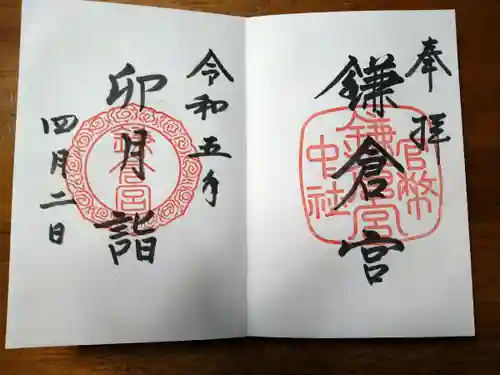 奉拝
鎌倉宮
官幣
鎌倉宮
中社
令和五年
卯月詣
鎌倉宮
四月二日